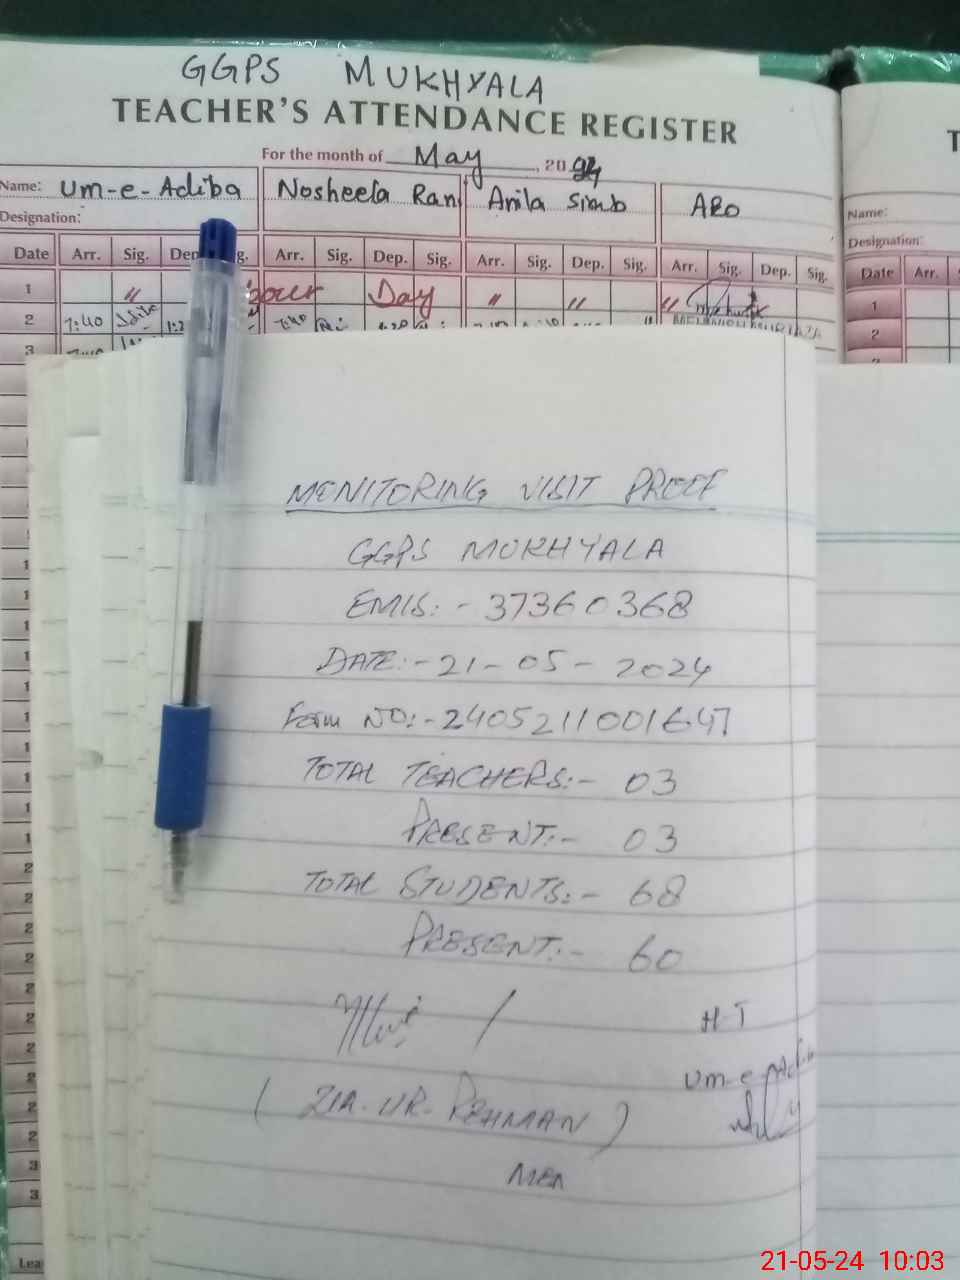 GGPS MUKHYALA
TEACHER'S ATTENDANCE REGISTER
For the month of May, 2024
Name: Um-e-Adiba Nosheela Ran Anila ARO Name:
Designation: Designation:
Date Arr. Sig. Dep. Sig. Arr. Sig. Dep. Sig. Arr. Sig. Dep. Sig. Arr. Sig. Dep. Sig. Date Arr.
1 " Day " " " 1
2 7:40 7:40 2
3
MONITORING VISIT PROOF
GGPS MUKHYALA
EMIS:- 37360368
DATE:- 21-05-2024
Form NO:- 2405211001647
TOTAL TEACHERS:- 03
PRESENT:- 03
TOTAL STUDENTS:- 68
PRESENT:- 60
H-T
Um-e-Adiba
(ZIA-UR-REHMAN)
MEA
Lea
21-05-24 10:03